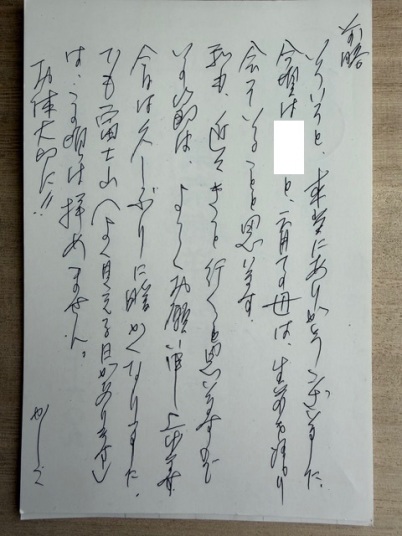 前略
いろいろと、本当にありがとうございました。
今頃は
と、育ての母は、生前の
会っていることと思います。
私も、近々きっと行くと思いますので
その節は、よろしくお願い申し上げます。
今日は久しぶりに暖かくなりました。
でも富士山(よく見える日があります)
は、この頃は拝めません。
お体大切に!!